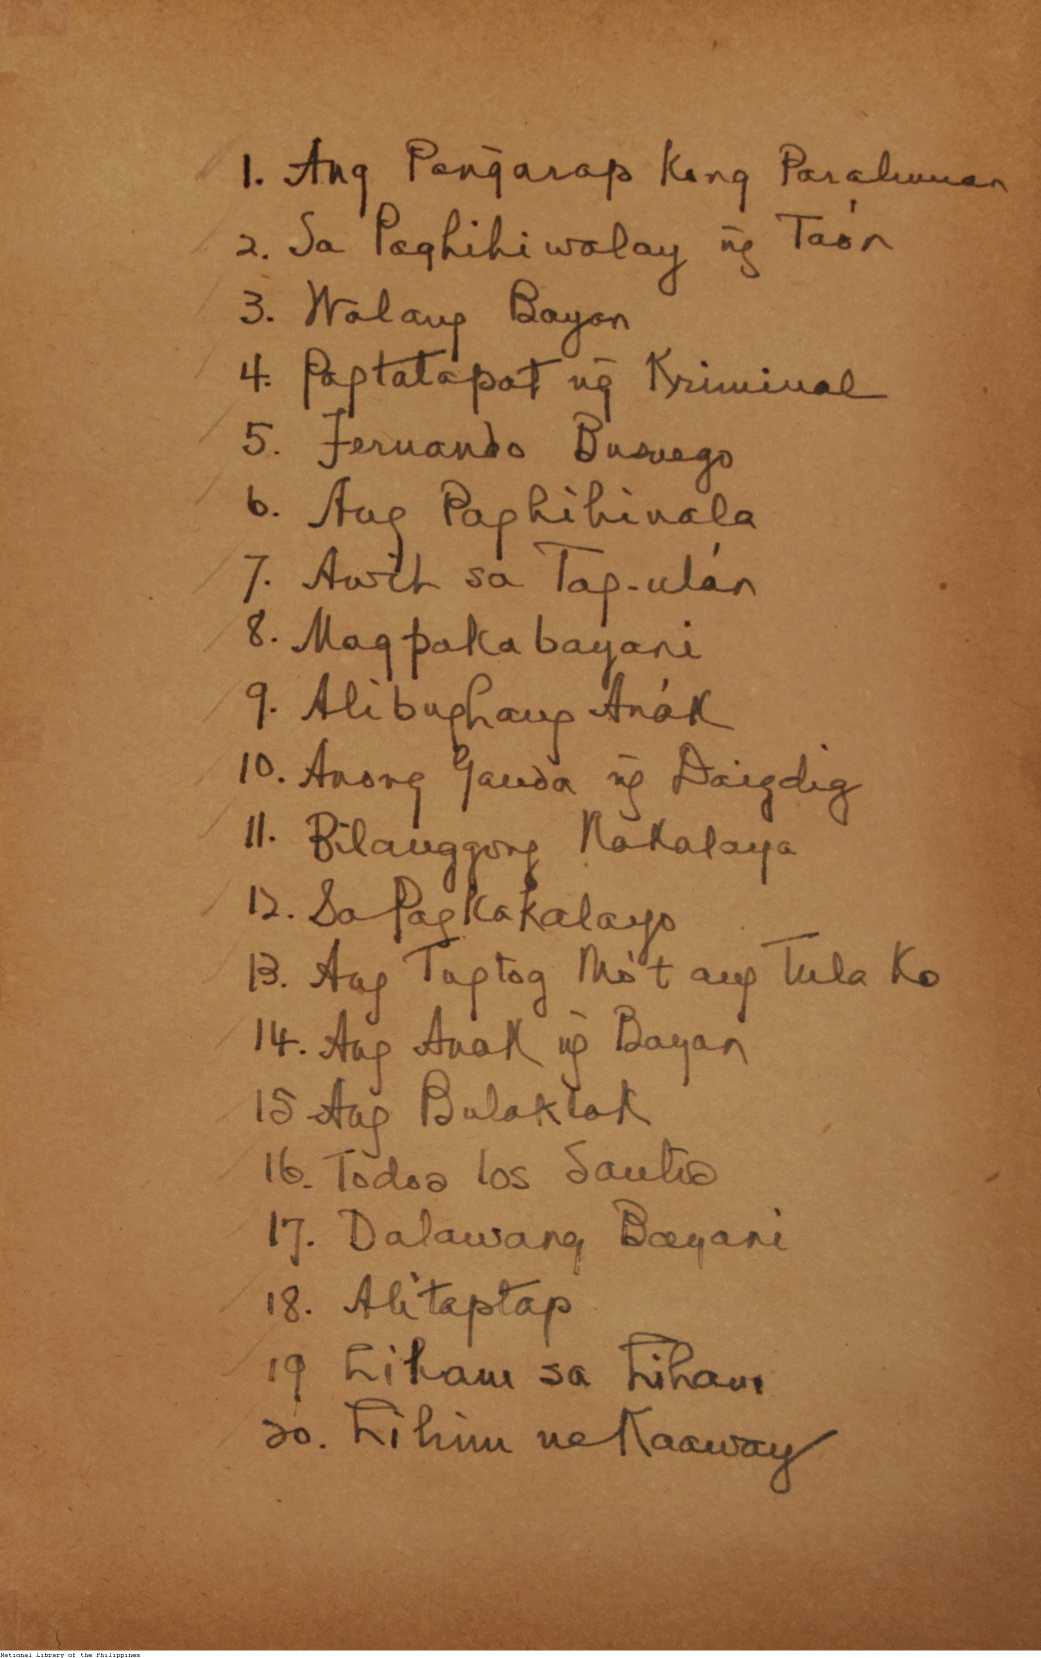 1. Ang Pang̃arap Kong Paraluman
2. Sa Paghihiwalay ng̃ Taón
3. Walang Bayan
4. Pagtatapat ng̃ Kriminal
5. Fernando Busuego
6. Ang Paghihinala
7. Awit sa Tag-ulán
8. Magpakabayani
9. Alibughang Anák
10. Anong Ganda ng̃ Daigdig
11. Bilanggong Nakalaya
12. Sa Pagkakalayo
13. Ang Tugtog Mo't ang Tula Ko
14. Ang Anak ng̃ Bayan
15 Ang Bulaklak
16. Todos los Santos
17. Dalawang Bayani
18. Alitaptap
19 Liham sa Liham
20. Lihim na Kaaway
National Library of the Philippines